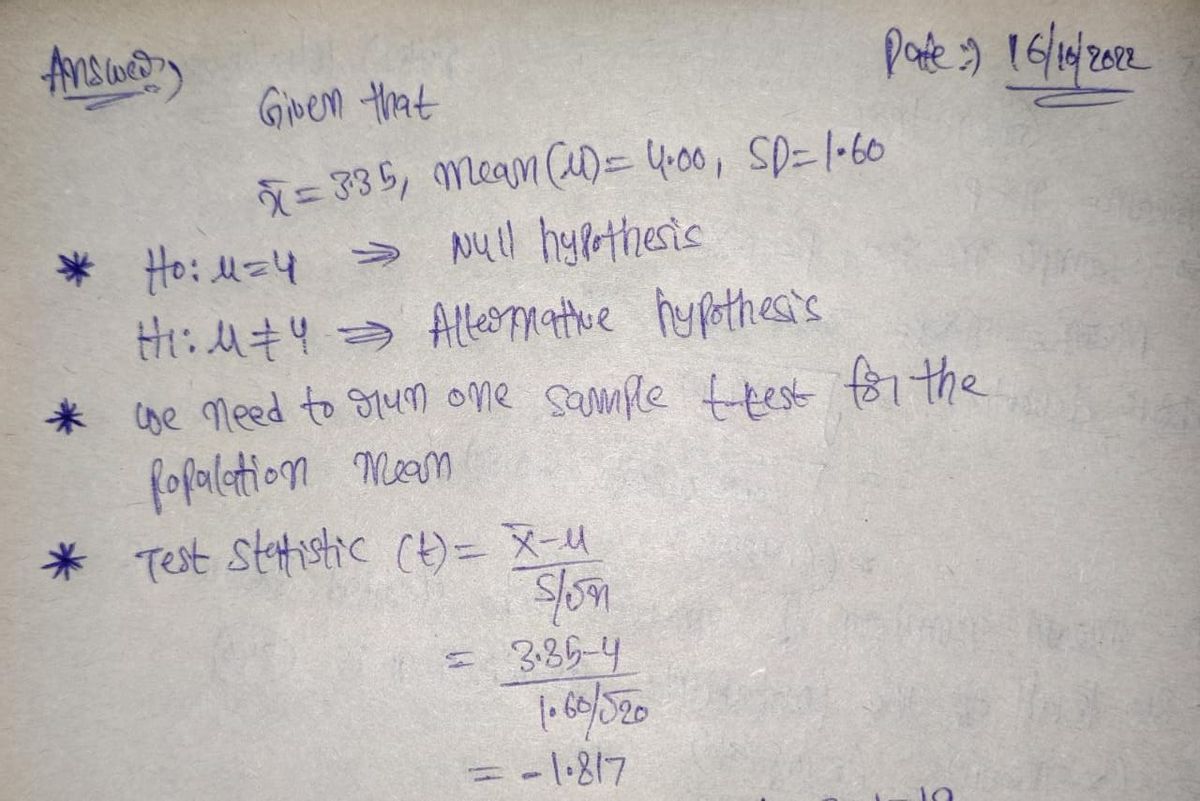 Answer:)
Date :) 16/10/2022
Given that
x̄ = 3.35, mean (μ) = 4.00, SD = 1.60
* H0: μ=4 ⇒ Null hypothesis
H1: μ≠4 ⇒ Alternative hypothesis
* we need to run one sample t-test for the
population mean
* Test statistic (t) = x̄-μ / S/√n
= 3.35-4 / 1.60/√20
= -1.817